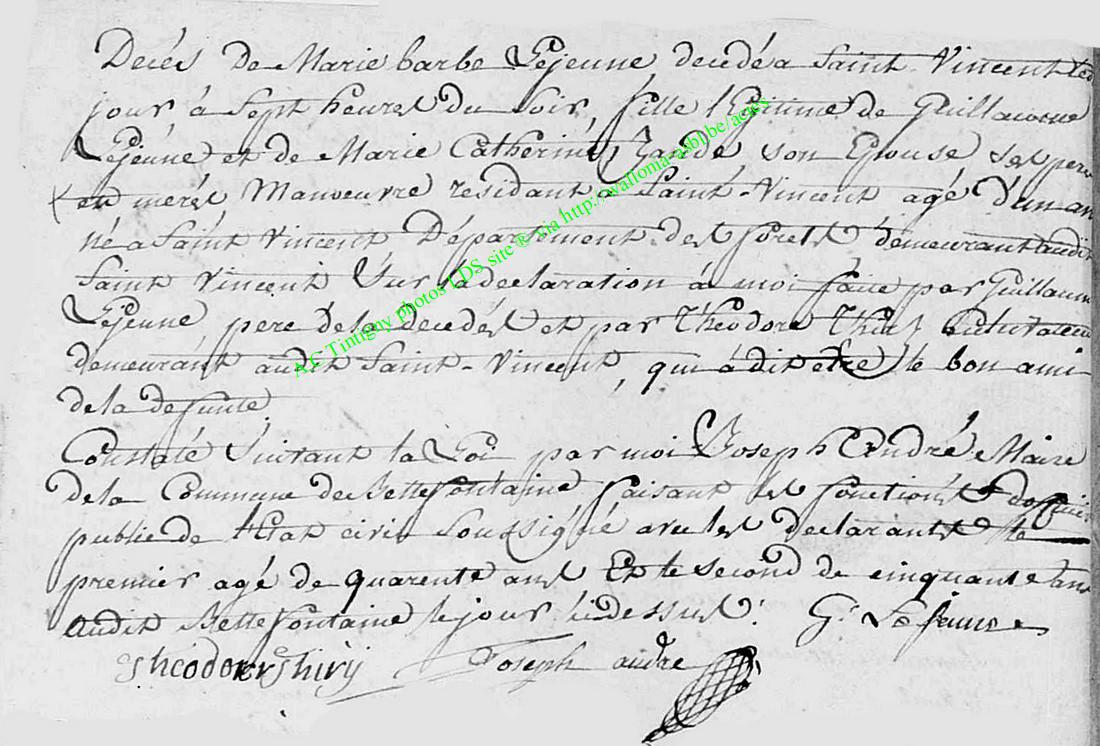 Decés de Marie barbe Lejeune decedé a Saint Vincent led
jour à Sept heures du Soir, fille légitime de Guillaume
Lejeune et de Marie Catherine son Epouse Ses pere
et meres Manoeuvre residant a Saint-Vincent agé d'un an
né a Saint Vincent Département des forets demeurant audit
Saint Vincent Sur la declaration à moi faite par Guillaume
Lejeune pere de la decedés et par Théodore Cultivateur
demeurant audit Saint-Vincent, qui à dit etre le bon ami
de la defunte,
Constaté Suivant la Loi par moi Joseph André Maire
de la Commune de Bellefontaine faisant les fonctiones d'officier
public de l'Etat civil Soussigné avec les declarants le
premier agé de quarente ans Et le second de cinquante ans
audit Bellefontaine le jour cidessus. G. Le Jeune
Theodore thiry Joseph andre
AC Tintigny photos LDS site ® via http://wallonia-asbl.be/actes